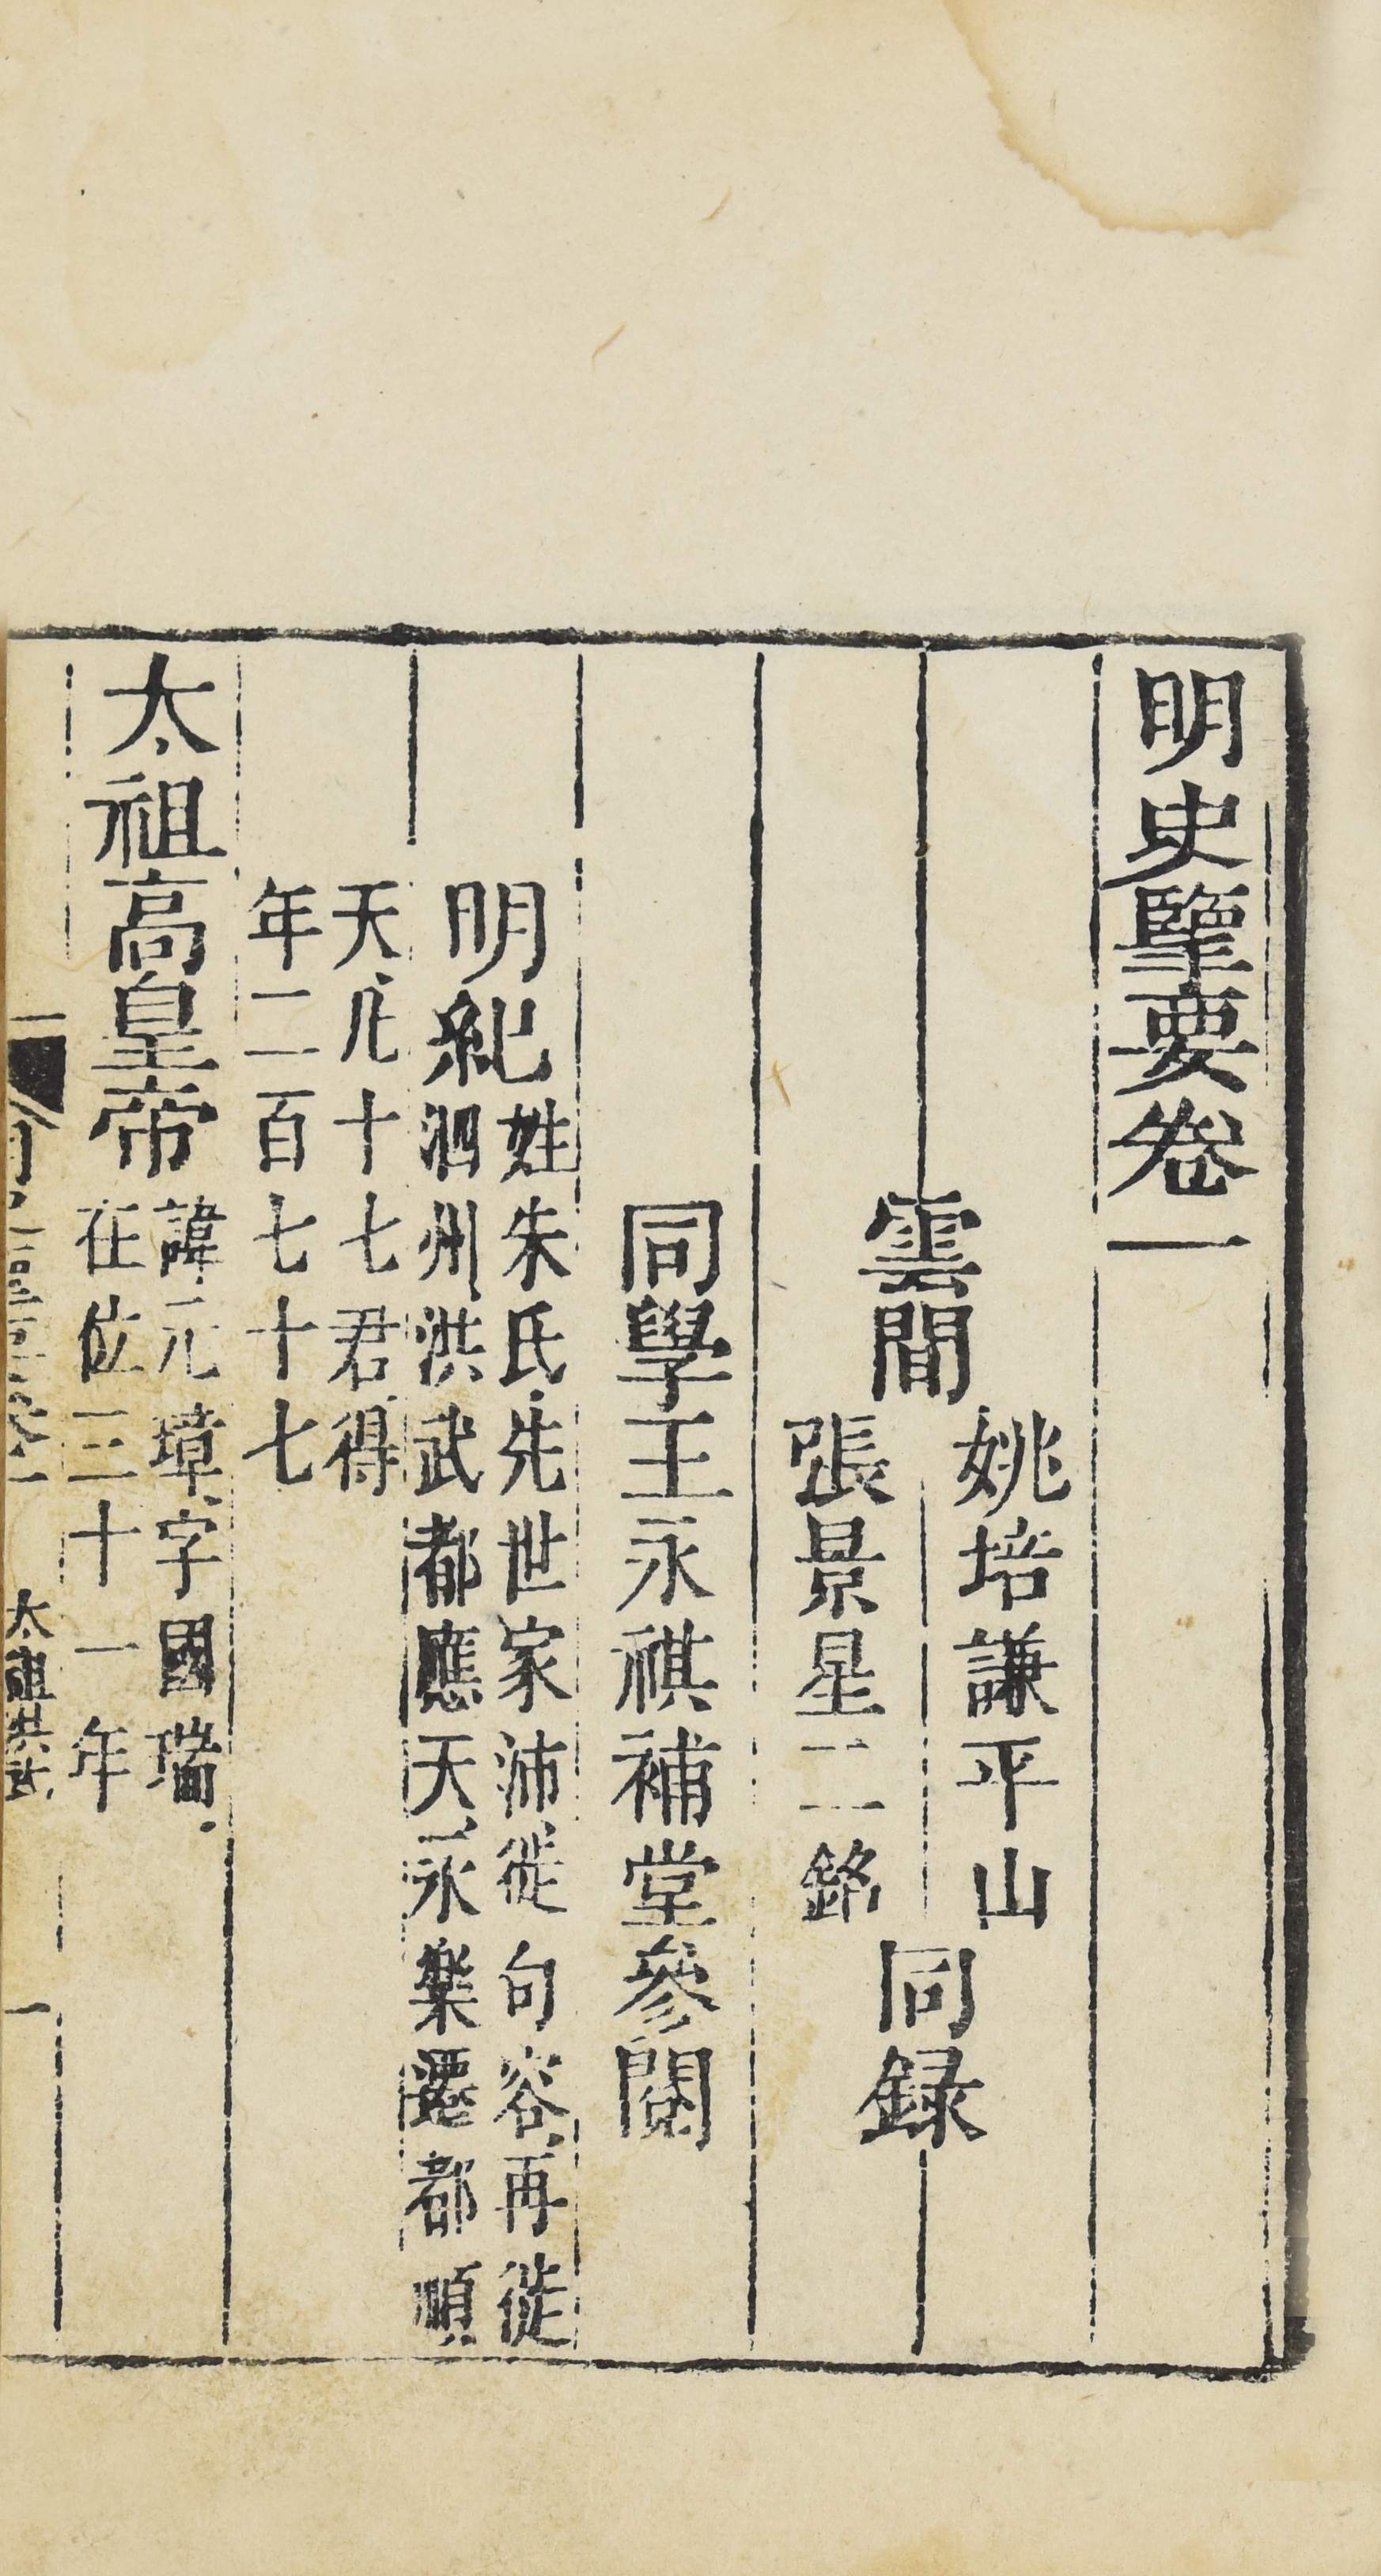 明史擥要卷一
雲間
姚培謙平山
張景星二銘
同録
同學王永祺補堂參閱
明紀
姓朱氏先世家沛徙句容再徙
泗州洪武都應天永樂遷都順
天凡十七君得
年二百七十七
太祖高皇帝
諱元璋字國瑞
在位三十一年
太祖洪武
一